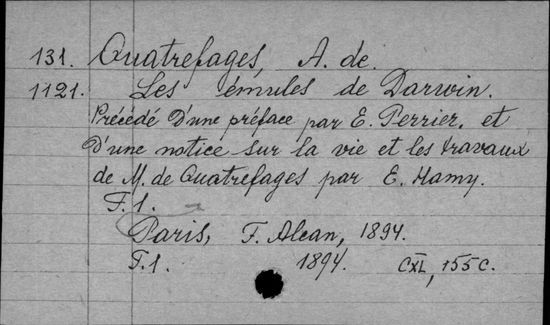 131. Quatrefages, A. de.
1121. Les émules de Darwin.
Précédé d'une préface par E. Perrier, et
d'une notice sur la vie et les travaux
de M. de Quatrefages par E. Hamy.
T. 1.
Paris, F. Alcan, 1894.
T. 1. 1894. CXL, 155 c.